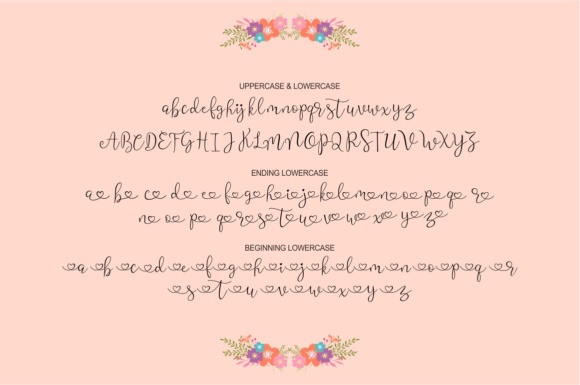 UPPERCASE & LOWERCASE
abcdefghijklmnopqrstuvwxyz
ABCDEFGHIJKLMNOPQRSTUVWXYZ
ENDING LOWERCASE
a b c d e f g h i j k l m n o p q r
n o p q r s t u v w x y z
BEGINNING LOWERCASE
a b c d e f g h i j k l m n o p q r
s t u v w x y z